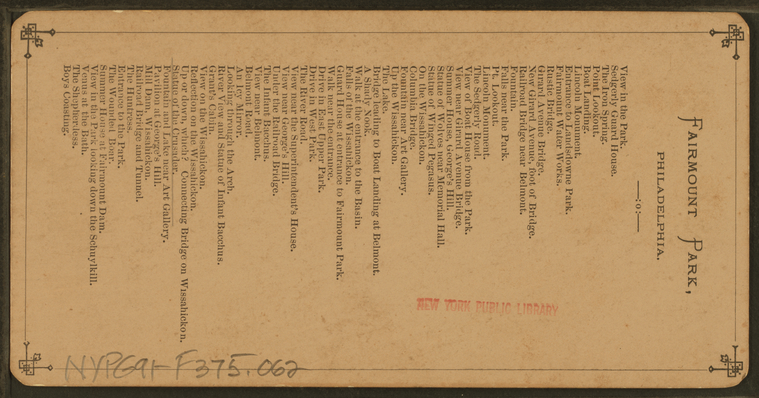 FAIRMOUNT PARK,
PHILADELPHIA.
—:o:—
View in the Park.
Sedgerly Guard House.
The Iron Spring.
Point Lookout.
Boat Landing.
Lincoln Monument.
Entrance to Landsdowne Park.
Fairmount Water Works.
Rustic Bridge.
Girard Avenue Bridge.
New Girard Avenue, foot of Bridge.
Railroad Bridge near Belmont.
Fountain.
Valley near the Park.
Pt. Lookout.
Lincoln Monument.
The Schuylkill.
View of Boat House from the Park.
View near Girard Avenue Bridge.
Summer House, George's Hill.
Statue of Wolves near Memorial Hall.
Statue of Winged Pegasus.
On the Wissahickon.
Columbia Bridge.
Fountain near Art Gallery.
Up the Wissahickon.
The Lake.
Bridge leading to Boat Landing at Belmont.
A Shady Nook.
Walk at the entrance to the Basin.
Falls of the Wissahickon.
Guard House at entrance to Fairmount Park.
Walk near the entrance.
Drive in East Upper Park.
Drive in West Park.
The River Road.
View near the Superintendent's House.
View on George's Hill.
Under the Railroad Bridge.
The Infant Bacchus.
View near Belmont.
An Icy Mirror.
Belmont Road.
Looking through the Arch.
River View and Statue of Infant Bacchus.
Grant's Cabin.
View on the Wissahickon.
Reflection on the Wissahickon.
Up the Wissahickon? Connecting Bridge on Wissahickon.
Statue of the Crusader.
Fountain and Lake near Art Gallery.
Pavilion, George's Hill.
Mill Dam, Wissahickon.
Railroad Bridge and Tunnel.
The Huntress.
Entrance to the Park.
The Wooden Bridge.
Summer House at Fairmount Dam.
View in the Park looking down the Schuylkill.
Venus at the Bath.
The Shepherdess.
Boys Coasting.
NEW YORK PUBLIC LIBRARY
NYPG91-F375.062